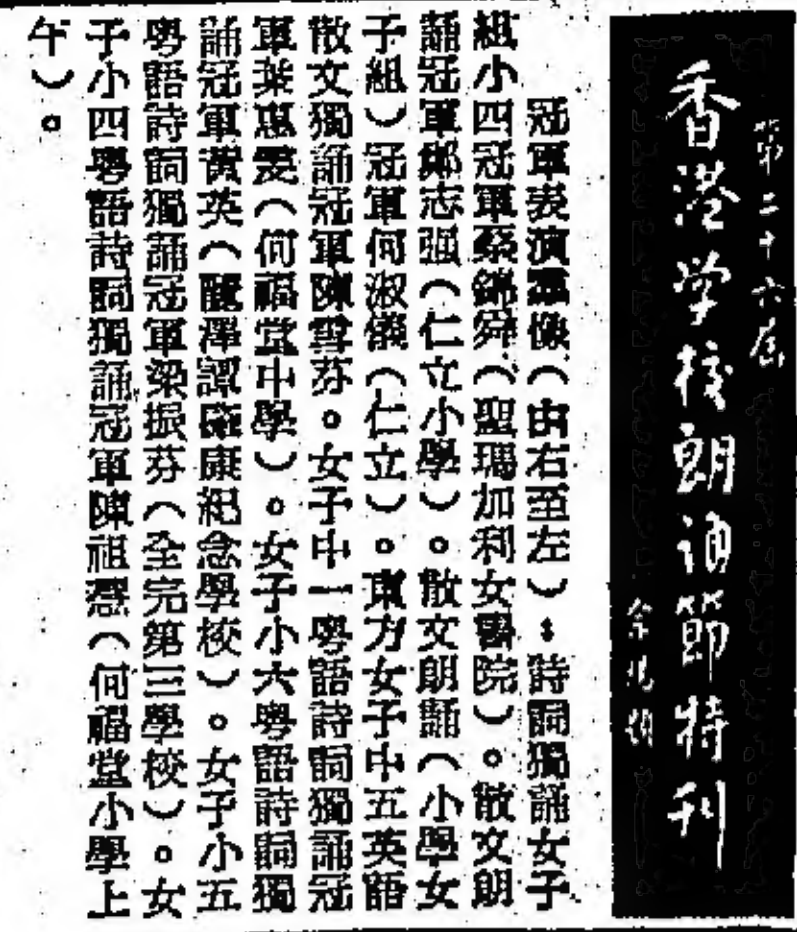 第二十六屆
香港学校朗诵節特刊
冠軍表演選像(由右至左):詩詞獨誦女子
組小四冠軍蔡錦舜(聖瑪加利女書院)。散文朗
誦冠軍鄭志強(仁立小學)。散文朗誦(小學女
子組)冠軍何淑儀(仁立)。東方女子中五英語
散文獨誦冠軍陳雪芬。女子中一粵語詩詞獨誦冠
軍葉惠雯(何福堂中學)。女子小六粵語詩詞獨
誦冠軍黃英(麗澤譚雍康紀念學校)。女子小五
粵語詩詞獨誦冠軍梁振芬(全完第三學校)。女
子小四粵語詩詞獨誦冠軍陳祖慧(何福堂小學上
午)。